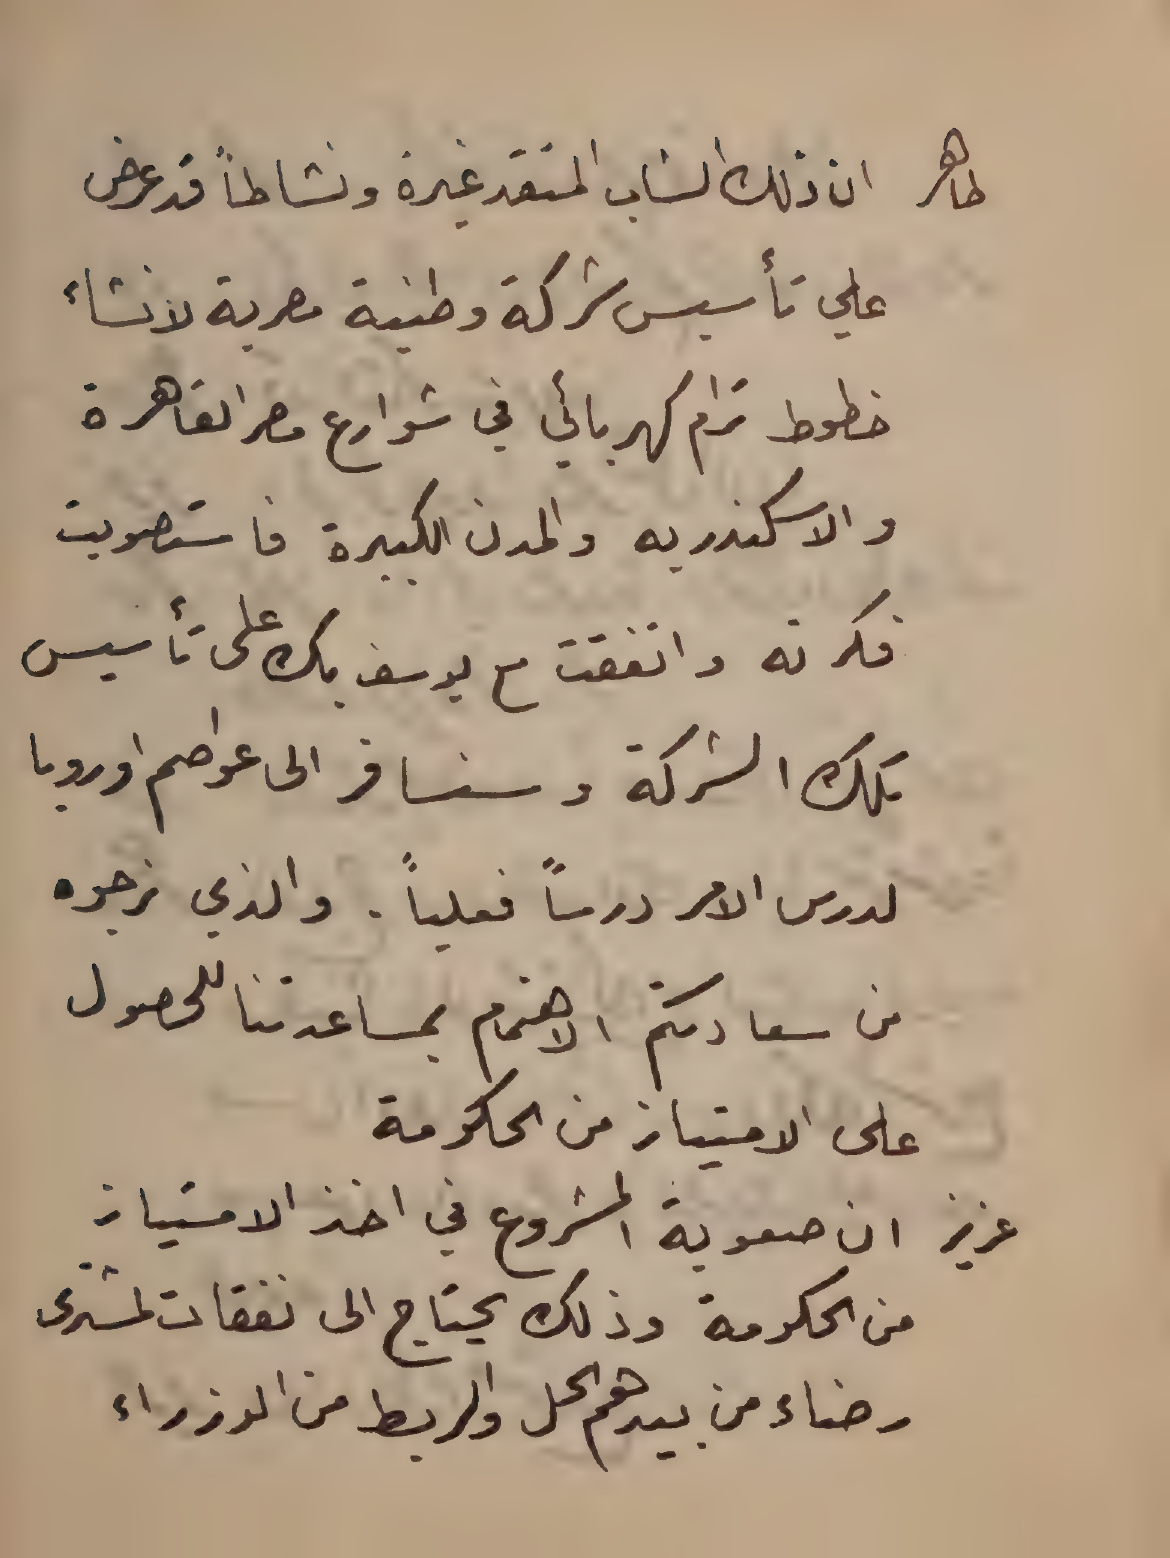 طاهر ان ذلك الشاب المتقد غيرة ونشاطاً قد عرض
علي تأسيس شركة وطنية مصرية لانشاء
خطوط ترام كهربائي في شوارع مصر القاهرة
والاسكندريه والمدن الكبيرة فاستصوبت
فكرته واتفقت مع يوسف بك على تأسيس
تلك الشركة وسنسافر الى عواصم اوروبا
لدرس الامر درساً فعلياً . والذي نرجوه
من سعادتكم الاهتمام بمساعدتنا للحصول
على الامتياز من الحكومة
عزيز ان صعوبة المشروع في اخذ الامتياز
من الحكومة وذلك يحتاج الى نفقات لمشترى
رضاء من بيدهم الحل والربط من الوزراء